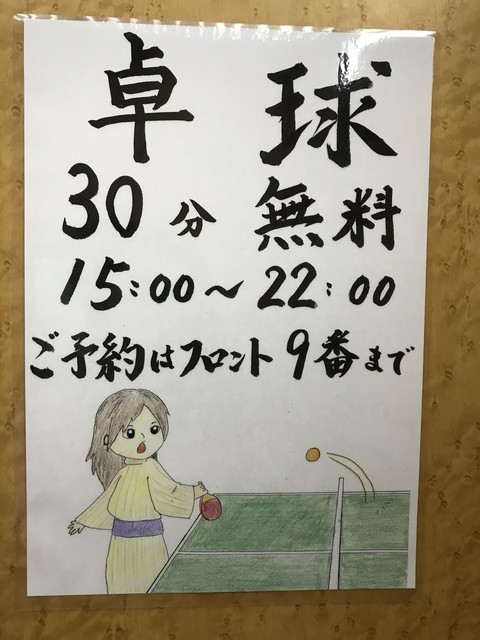 卓球
30分 無料
15:00～22:00
ご予約はフロント9番まで